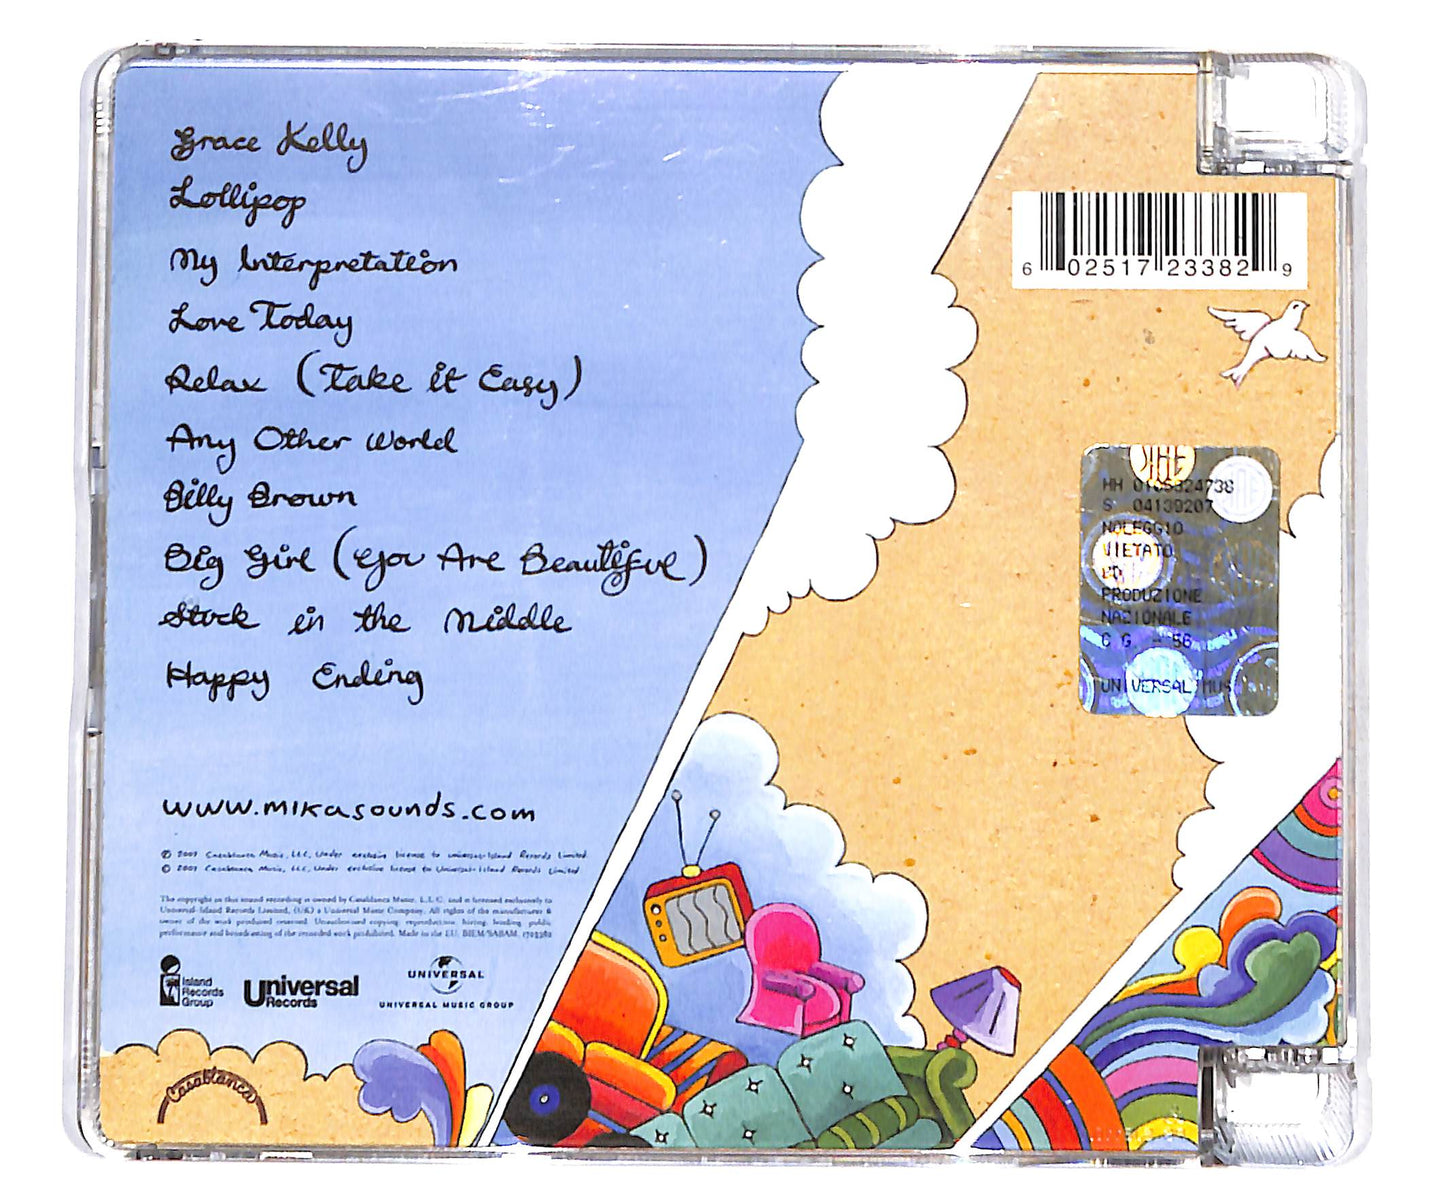 Grace Kelly
Lollipop
My Interpretation
Love Today
Relax (Take it Easy)
Any Other World
Billy Brown
Big Girl (You Are Beautiful)
Stuck in the Middle
Happy Ending
www.mikasounds.com
℗ 2007 Casablanca Music, LLC, Under exclusive license to Universal-Island Records Limited.
© 2007 Casablanca Music, LLC, Under exclusive license to Universal-Island Records Limited
The copyright in this sound recording is owned by Casablanca Music, L.L.C. and is licensed exclusively to
Universal-Island Records Limited, (UK) a Universal Music Company. All rights of the manufacturer &
owner of the work produced reserved. Unauthorised copying, reproduction, hiring, lending, public
performance and broadcasting of the recorded work prohibited. Made in the EU. BIEM/SABAM. 1723382
Island
Records
Group
Universal
Records
UNIVERSAL
UNIVERSAL MUSIC GROUP
Casablanca
6 02517 23382 9
HH
S 04139207
NOLEGGIO
VIETATO
CD
PRODUZIONE
NAZIONALE
C G - 56
UNIVERSAL MUS